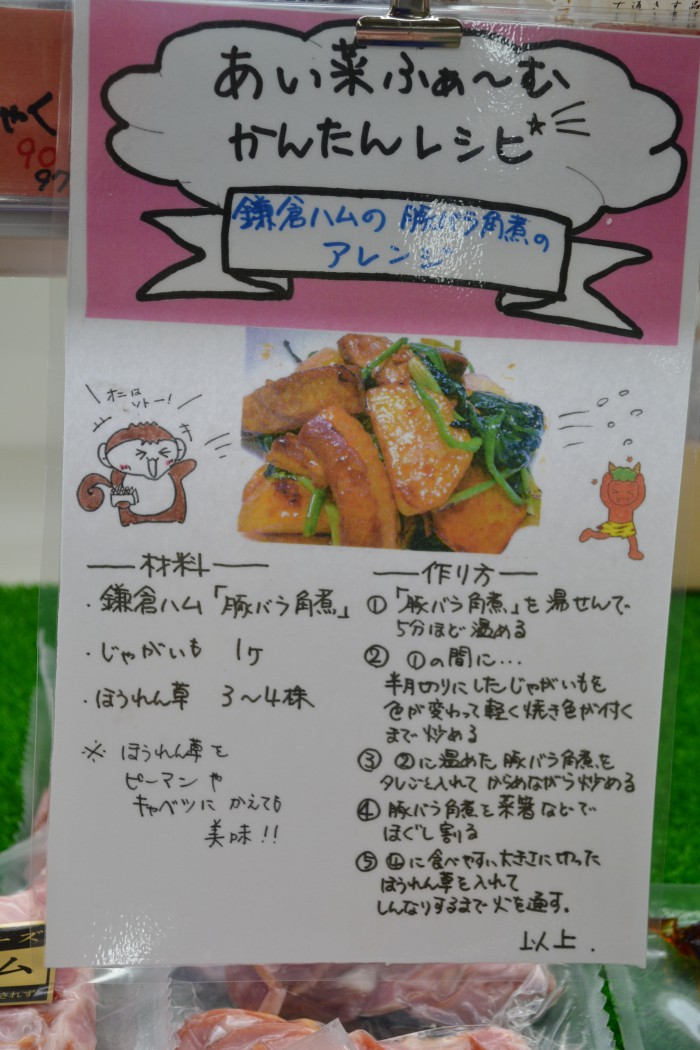 あい菜ふぁ〜む
かんたんレシピ
鎌倉ハムの 豚バラ角煮の
アレンジ
オニは
ソトー!
材料
・鎌倉ハム「豚バラ角煮」
・じゃがいも 1ヶ
・ほうれん草 3〜4株
※ ほうれん草を
ピーマンや
キャベツに かえても
美味!!
作り方
① 「豚バラ角煮」を湯せんで
5分ほど温める
② ①の間に…
半月切りにしたじゃがいもを
色が変わって軽く焼き色が付く
まで炒める
③ ②に温めた豚バラ角煮を
タレごと入れてからめながら炒める
④ 豚バラ角煮を菜箸などで
ほぐし割る
⑤ ④に食べやすい大きさに切った
ほうれん草を入れて
しんなりするまで火を通す。
以上.
ゃく
90
97
ーズ
ム